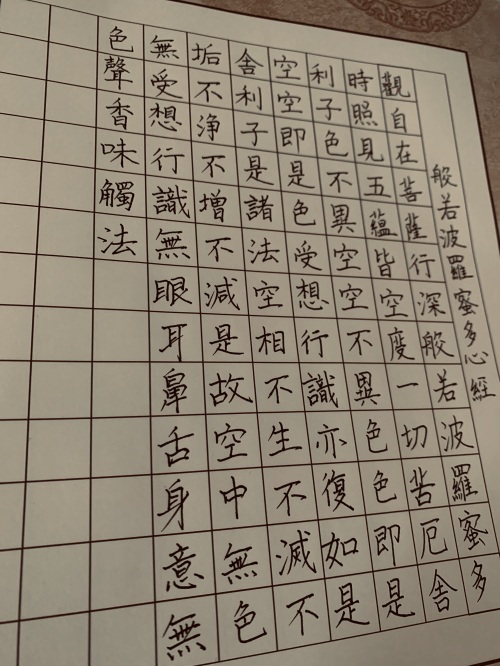 般若波羅蜜多心經
觀自在菩薩行深般若波羅蜜多
時照見五蘊皆空度一切苦厄舍
利子色不異空空不異色色即是
空空即是色受想行識亦復如是
舍利子是諸法空相不生不滅不
垢不淨不增不減是故空中無色
無受想行識無眼耳鼻舌身意無
色聲香味觸法